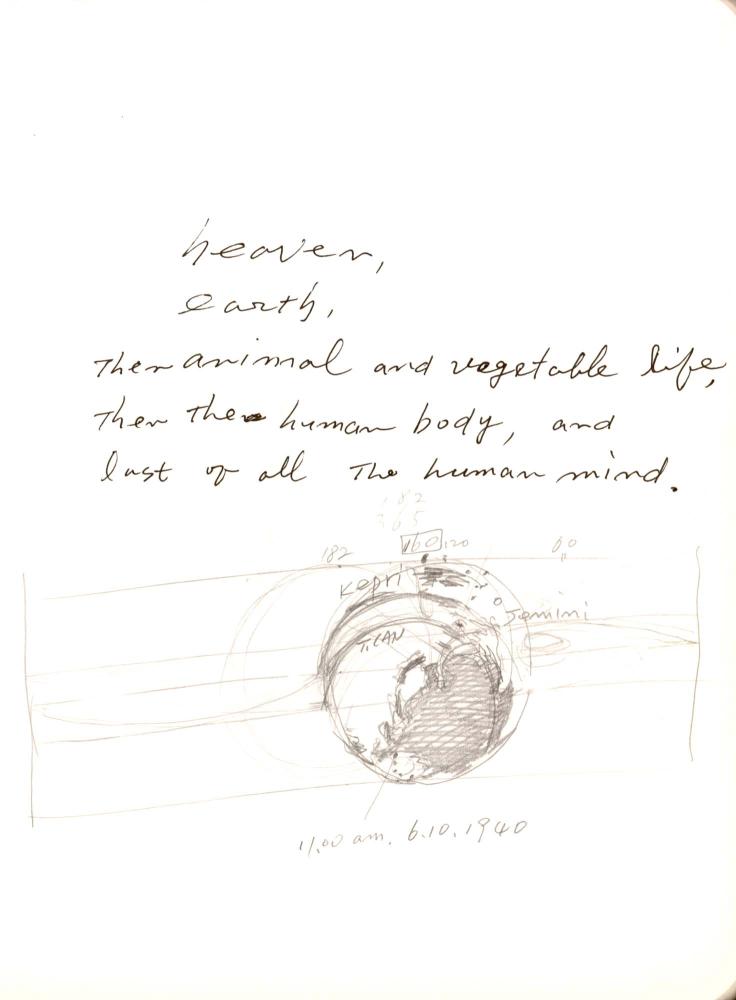 heaven,
earth,
Then animal and vegetable life,
Then the human body, and
last of all The human mind.
182
365
182 160 120 60
Kepri
Jemini
TiTAN
11.00 am. 6.10.1940